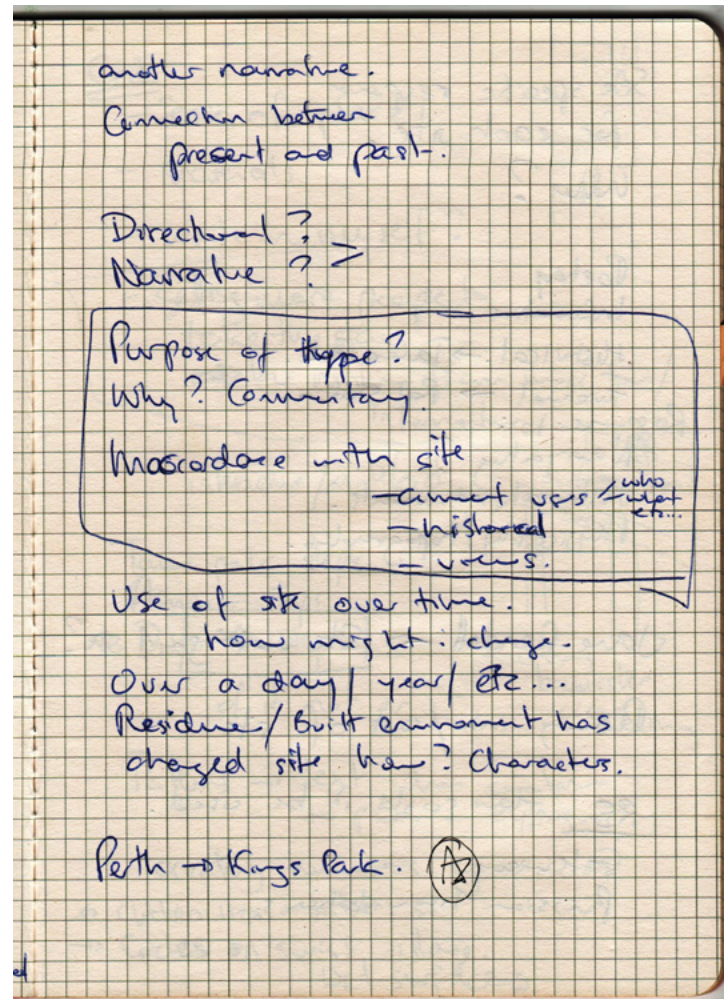 another narrative.
Connection between
present and past.
Directional ?
Narrative ?
Purpose of type?
Why? Commentary.
with site
- current uses / who
what
etc...
- historical
- views.
Use of site over time.
how might : change.
Over a day / year / etc...
Residue / Built enviroment has
changed site how? Characters.
Perth → Kings Park.